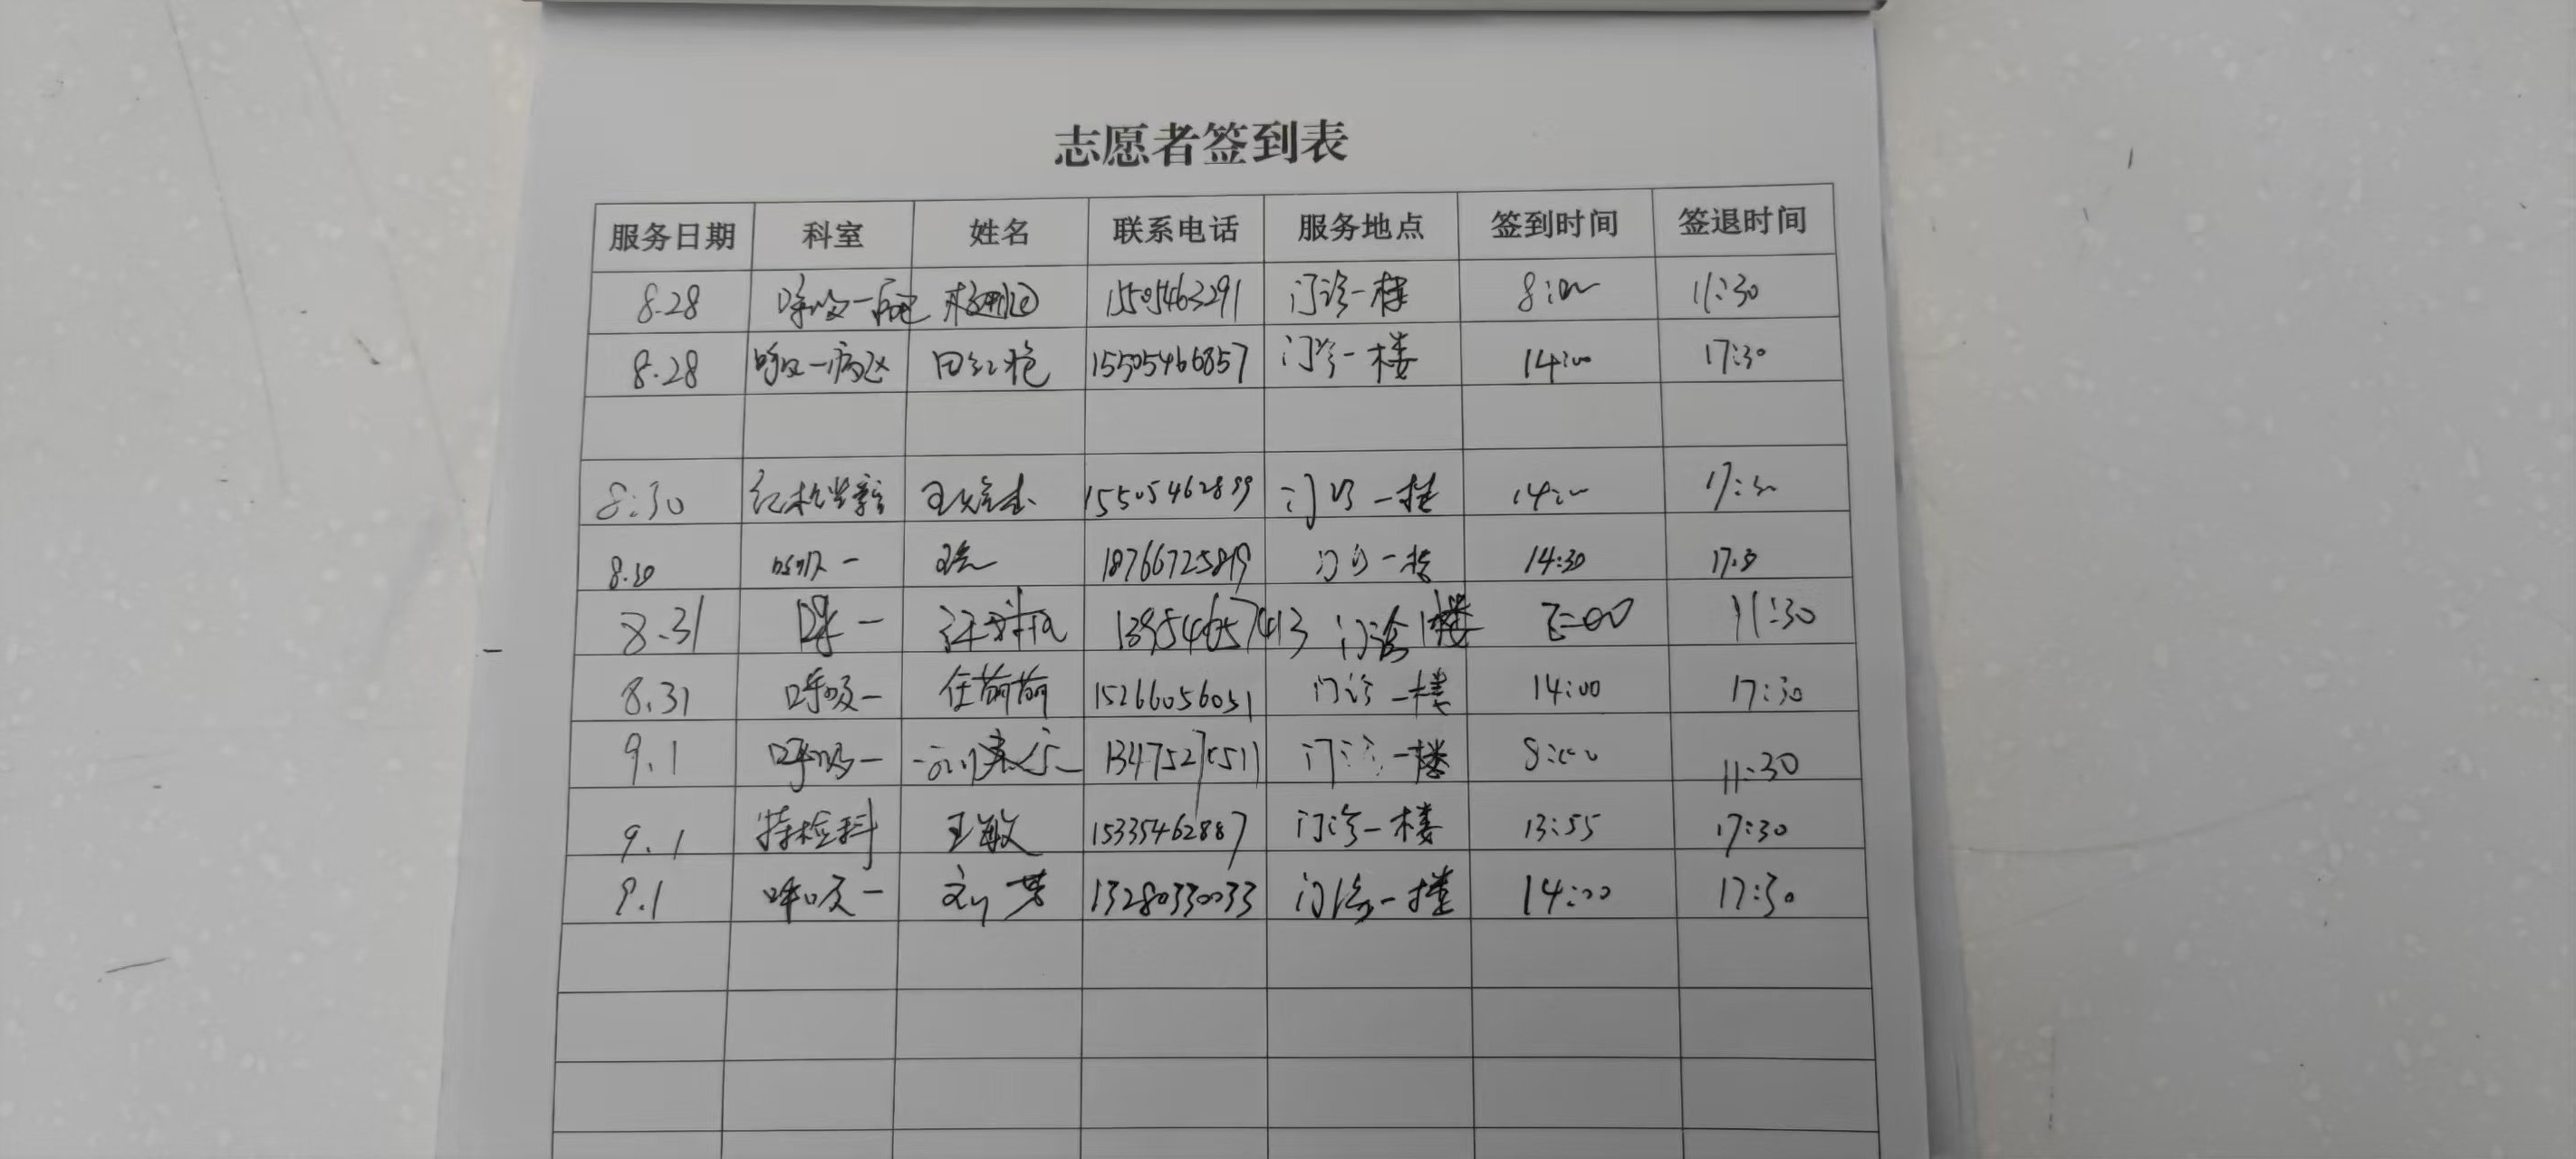 志愿者签到表
服务日期 科室 姓名 联系电话 服务地点 签到时间 签退时间
8.28 呼吸一病区 15505463291 门诊一楼 8:00 11:30
8.28 呼吸一病区 田红艳 15505466857 门诊一楼 14:00 17:30
8:30 15505462899 门诊一楼 14:00 17:30
8.30 呼吸一 18766725819 门诊一楼 14:30 17:30
8.31 呼一 13954657413 门诊1楼 11:30
8.31 呼吸一 任萌萌 15266056051 门诊一楼 14:00 17:30
9.1 呼吸一 门诊一楼 8:00 11:30
9.1 特检科 王敏 15335462887 门诊一楼 13:55 17:30
9.1 呼吸一 刘芳 13280330033 门诊一楼 14:00 17:30